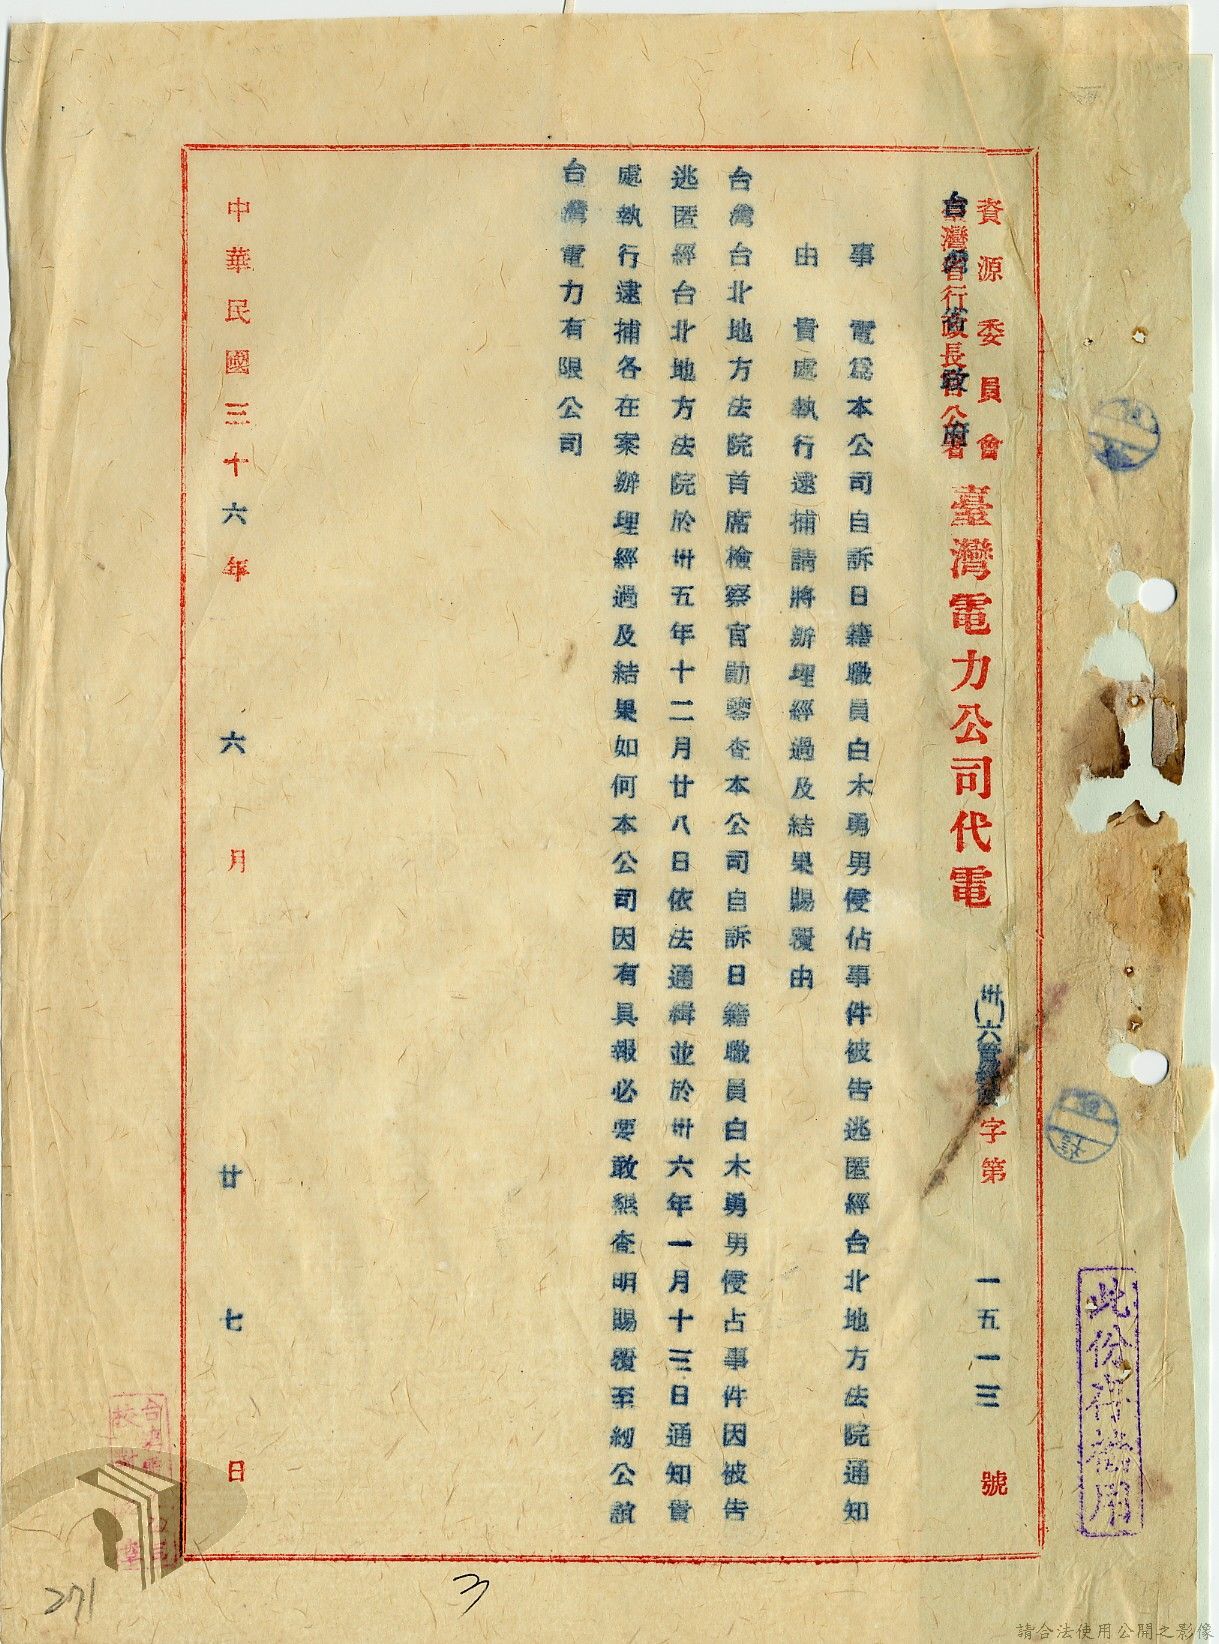 資源委員會
台灣省政府
臺灣電力公司代電
字第一五一三號
事
電為本公司自訴日籍職員白木勇男侵佔事件被告逃匿經台北地方法院通知
由
貴處執行逮捕請將辦理經過及結果賜覆由
台灣台北地方法院首席檢察官勛鑒查本公司自訴日籍職員白木勇男侵占事件因被告
逃匿經台北地方法院於卅五年十二月廿八日依法通緝並於卅六年一月十三日通知貴
處執行逮捕各在案辦理經過及結果如何本公司因有具報必要敢懇查明賜覆至紉公誼
台灣電力有限公司
中華民國三十六年六月廿七日
此份存檔用
271
3
請合法使用公開之影像